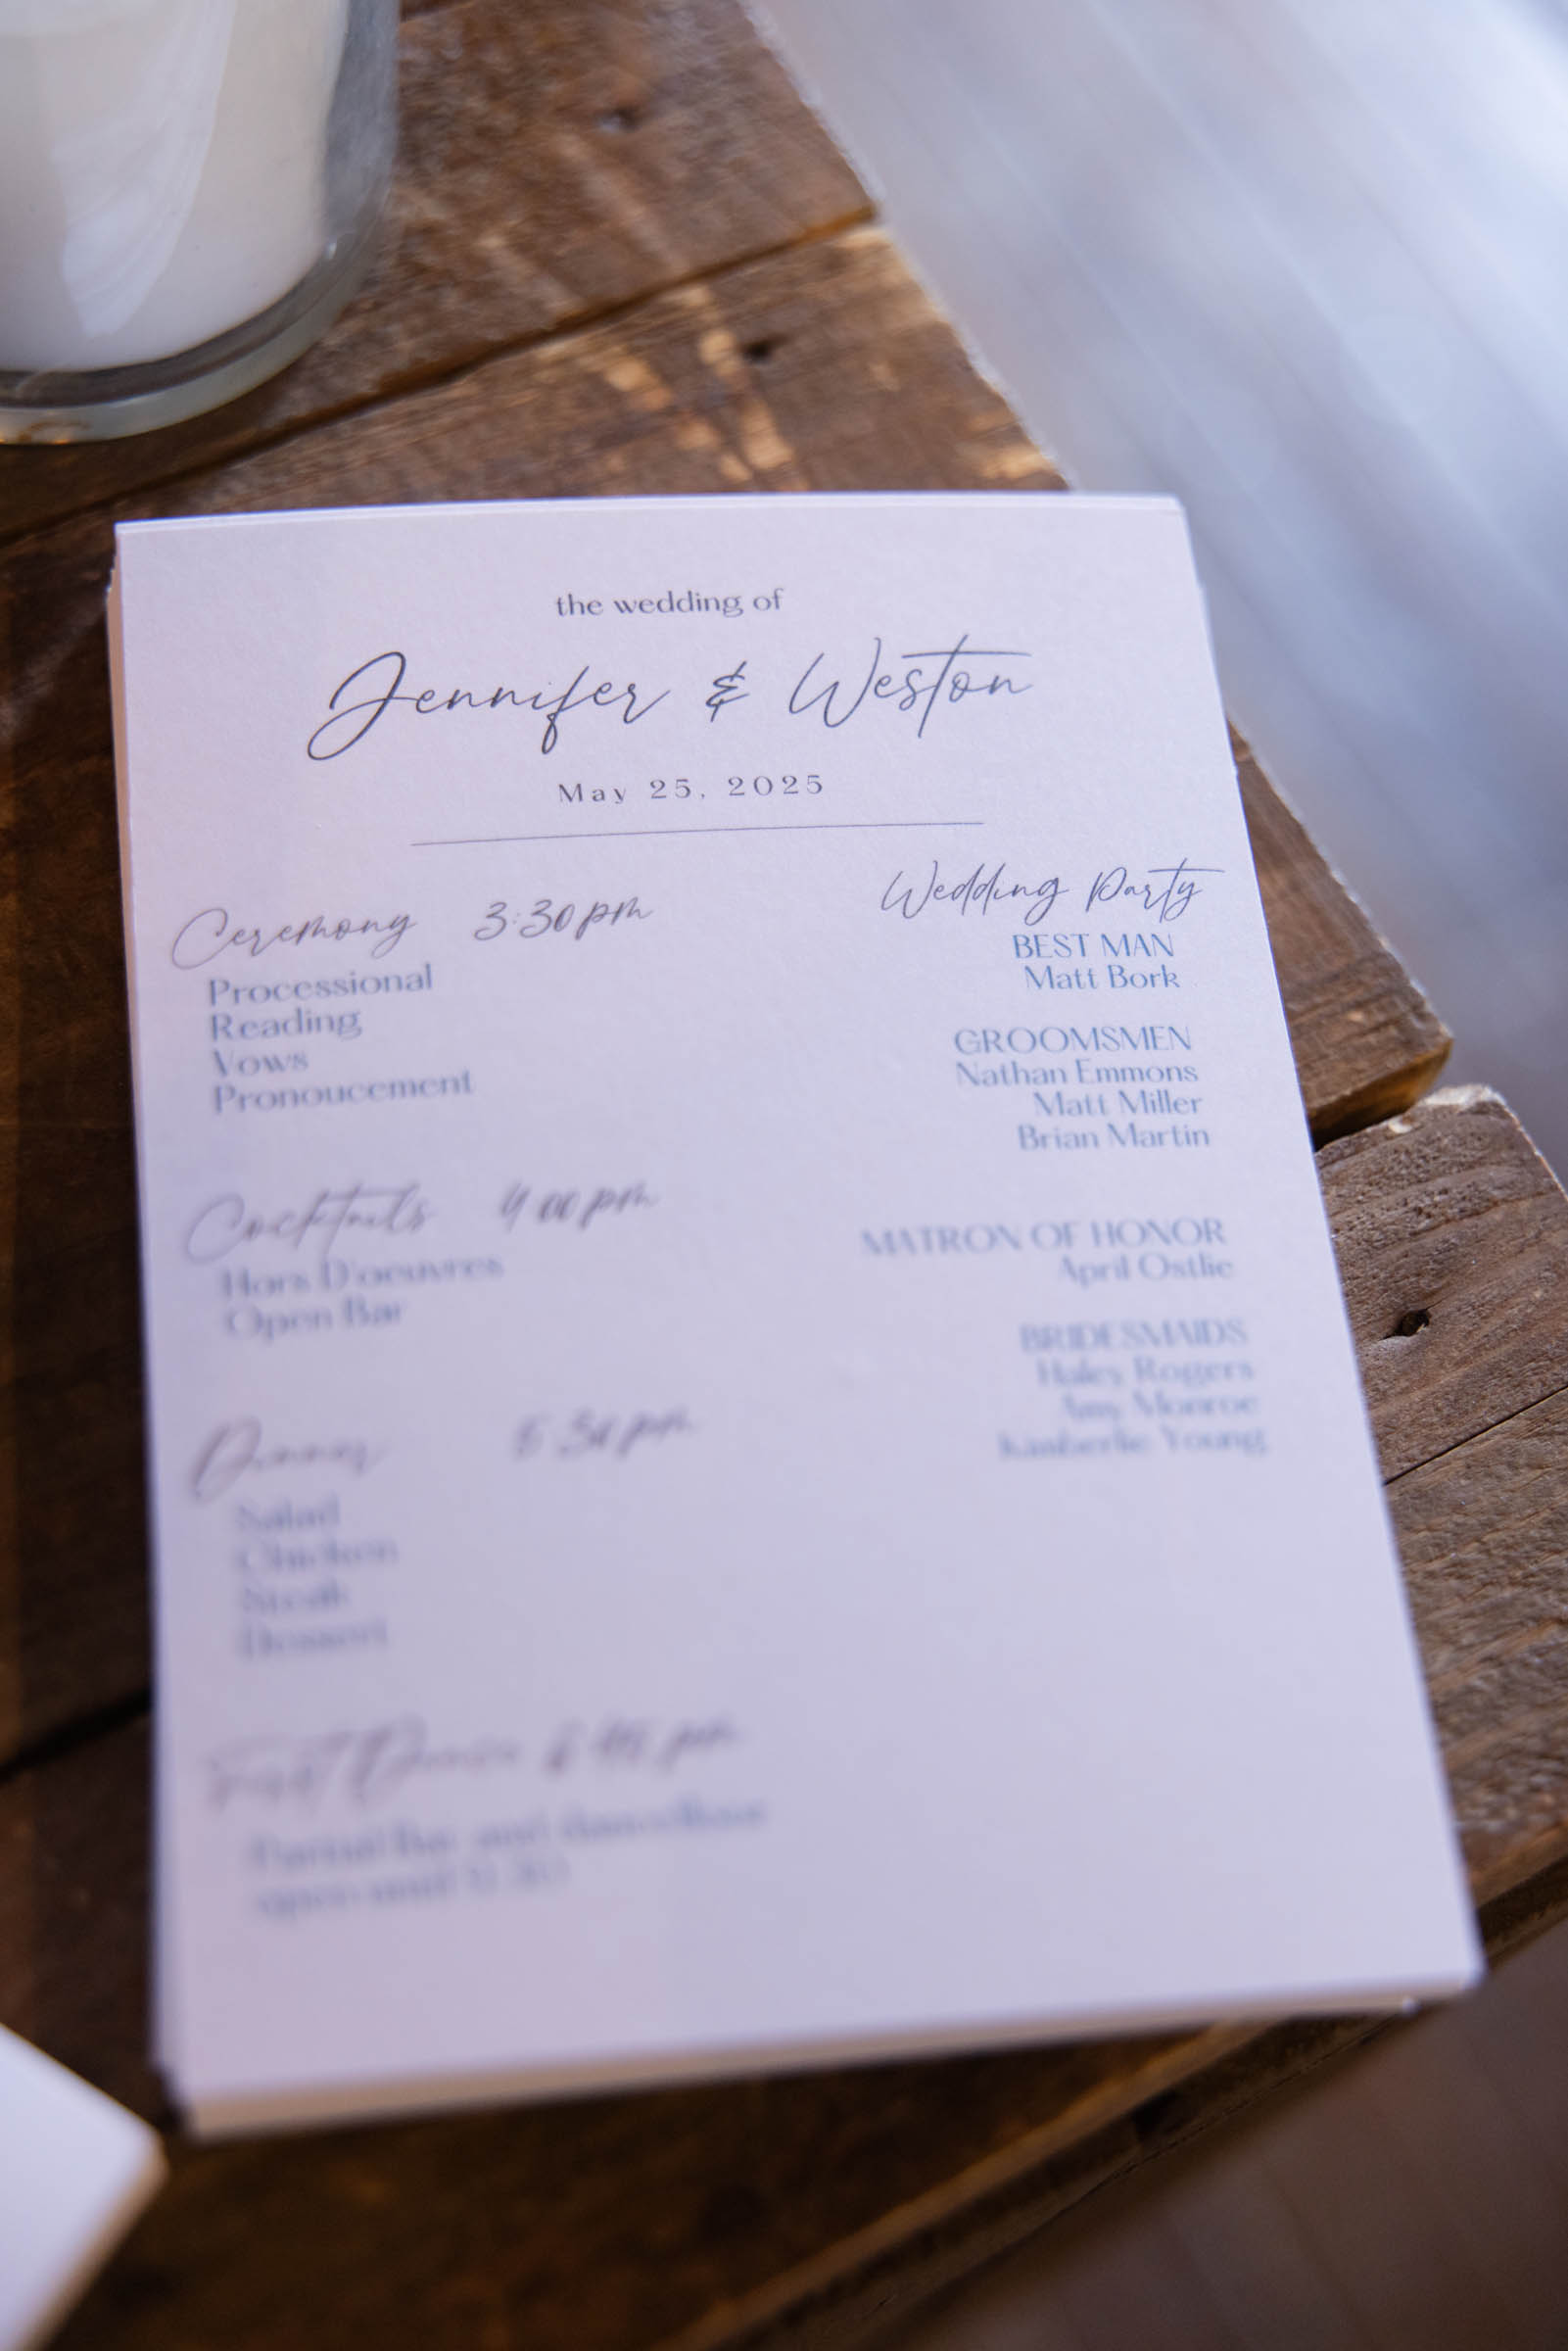 the wedding of
Jennifer & Weston
May 25, 2025
Ceremony 3:30 pm
Processional
Reading
Vows
Pronoucement
Cocktails 4:00 pm
Hors D'oeuvres
Open Bar
Dinner 5:30 pm
Salad
Chicken
Steak
Dessert
First Dance 6:45 pm
Bar and dancefloor
open until
Wedding Party
BEST MAN
Matt Bork
GROOMSMEN
Nathan Emmons
Matt Miller
Brian Martin
MATRON OF HONOR
April Ostlie
BRIDESMAIDS
Haley Rogers
Amy Monroe
Kimberlie Young